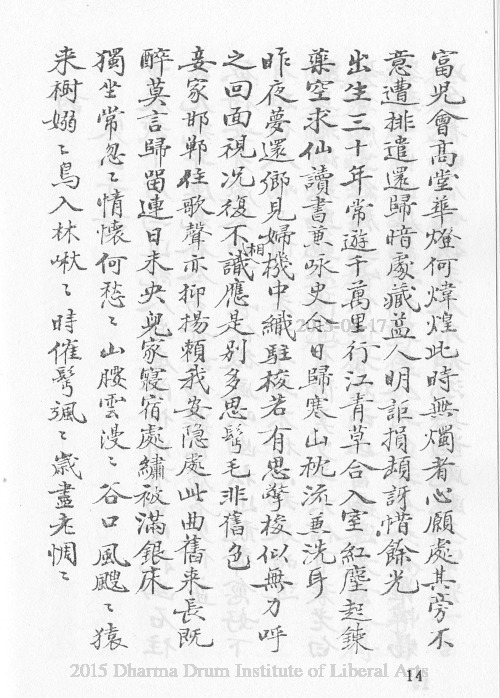 富児會髙堂華燈何煒煌此時無燭者心願處其旁不
意遭排遣還歸暗處藏益人明詎損頓訝惜餘光
出生三十年常遊千萬里行江青草合入室紅塵起鍊
藥空求仙讀書兼咏史今日歸寒山枕流兼洗耳
昨夜夢還鄉見婦機中織駐梭若有思擎梭似無力呼
之回面視况復不相識應是别多思鬢毛非舊色
妾家邯鄲住歌聲亦抑揚賴我安隐處此曲舊来長既
醉莫言歸留連日未央兒家寢宿處繡被滿銀床
獨坐常忽〻情懷何愁〻山腰雲漫〻谷口風颼〻猿
来樹嫋〻鳥入林啾〻時催鬢颯〻歲盡老惆〻
14
2015 Dharma Drum Institute of Liberal Arts